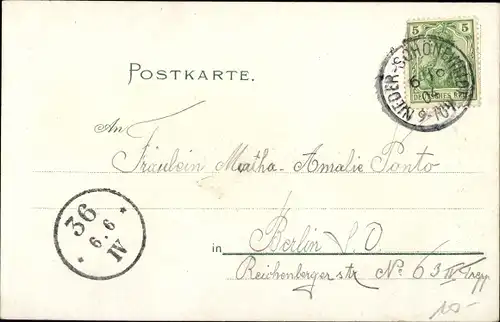 5 5
NIEDER-SCHÖNEWEIDE
6 6
04
DEUTSCHES REICH
POSTKARTE.
An
Fräulein Martha-Amalie Ponto
36
* 6.6 *
IV
in Berlin S.O.
Reichenbergerstr No 63 IV Trepp